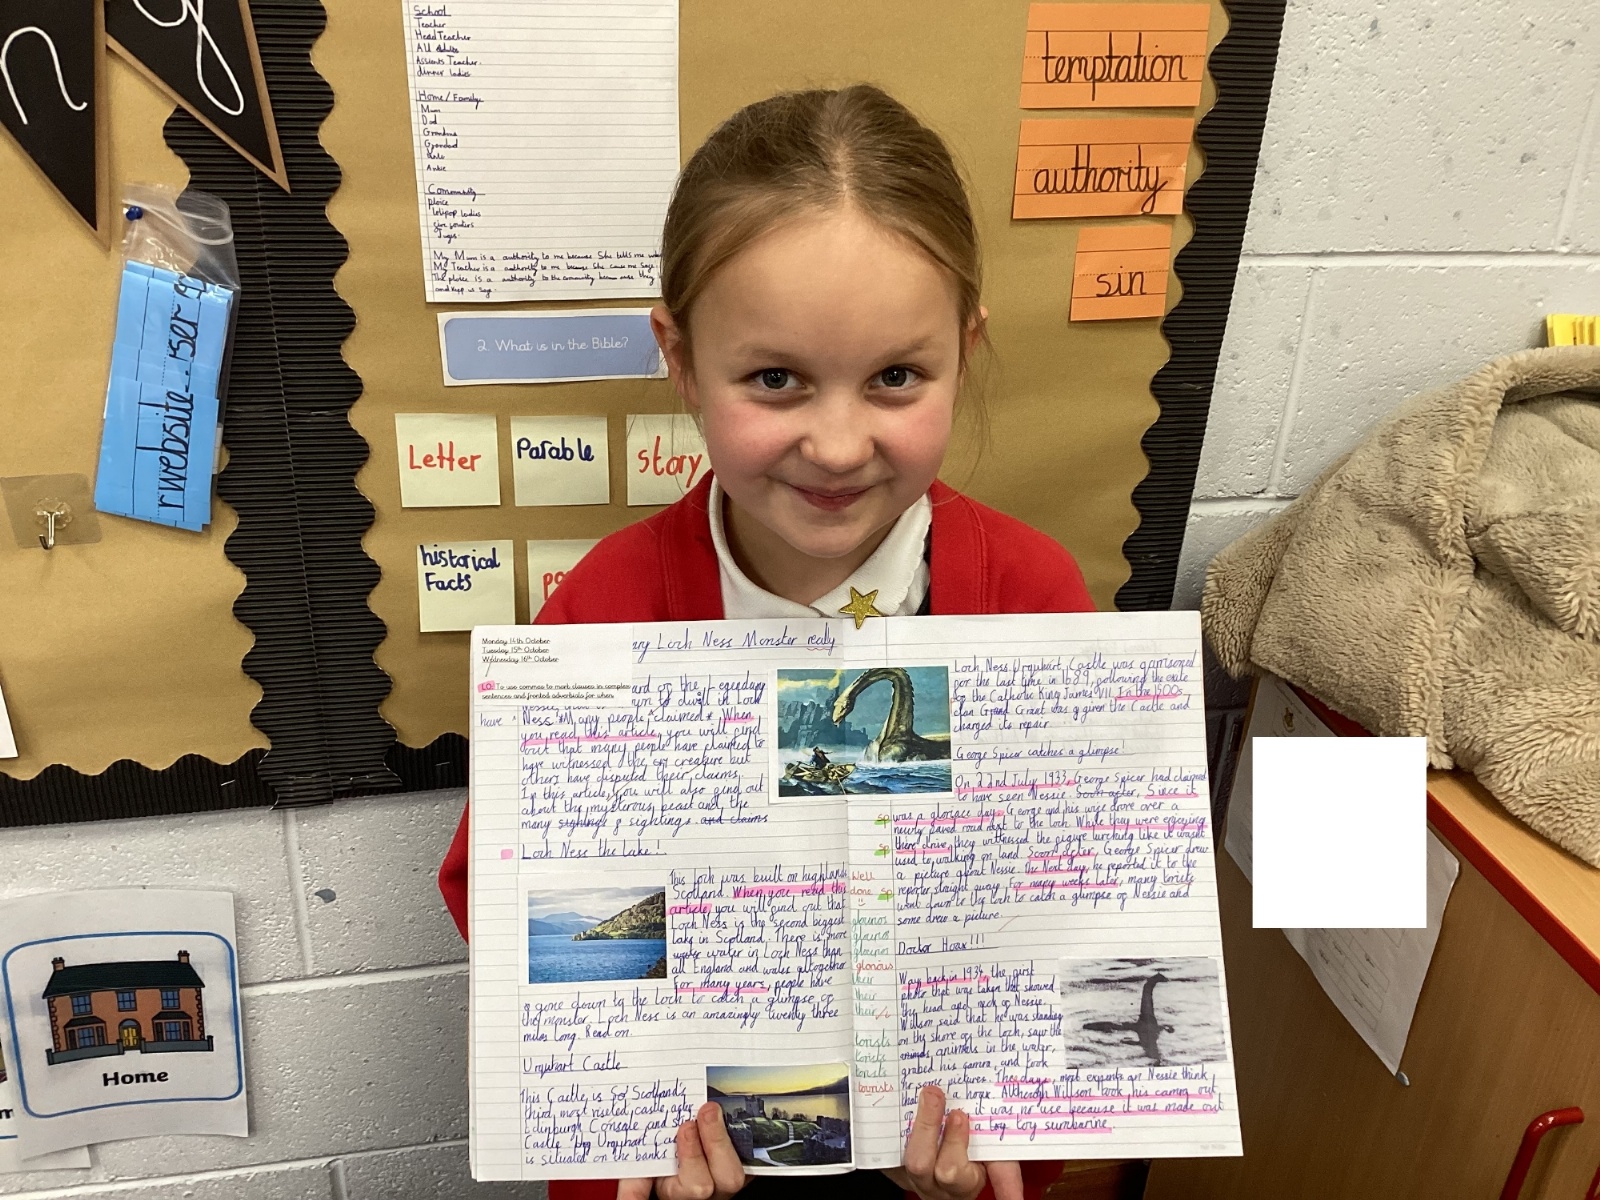 n
g
School
Teacher
Head Teacher
All Adults
Assients Teacher.
dinner ladies
Home / Family
Mum
Dad
Grandma
Grandad
Auntie
Community
ploice
lolipop ladies
Juges.
My Mum is a authority to me because She tells me
My Teacher is a authority to me because She
The ploice is a authority to the community because they
and Kepp us Safe.
temptation
authority
sin
website
2. What is in the Bible?
Letter
Parable
story
historical
Facts
Home
Monday 14th October
Tuesday 15th October
Wednesday 16th October
LO: To use commas to mark clauses in complex
sentences and fronted adverbials for when
Loch Ness Monster really
of the Legendary
to dwell in Loch
have
Ness. Many people claimed. When
you read this article, you will find
out that many people have claimed to
have witnessed the creature but
others have disputed their claims.
In this article, you will also find out
about the mysterous beast and the
many sightings & sightings. and claims
Loch Ness the Lake!
This Loch was built on highlands
Scotland. When you read this
article, you will find out that
Loch Ness is the second biggest
lake in Scotland. There is more
water in Loch Ness than
all England and wales altogether
For many years, people have
gone down to the Loch to catch a glimpse of
the monster. Loch Ness is an amazingly twenty three
miles long. Read on.
Urquhart Castle
This Castle is Scotland's
third most visited castle, after
Edinburgh and
Castle Urquhart
is situated on the banks
Loch Ness Urquhart Castle was garrisoned
for the last time in 1689, following the exile
of the Catholic King James VII. In the 1500s,
clan Grant was given the Castle and
charged its repair.
George Spicer catches a glimpse!
On 22nd July 1933, George Spicer had claimed
to have seen Nessie. Soon after, Since it
sp
was a day, George and his wife drove over a
newly paved road next to the loch. While they were enjoying
sp
there drive, they witnessed the figure lurching like it wasn't
used to walking on land. Soon after, George Spicer drew
a picture about Nessie. The Next day, he reported it to the
reporter straight away. For many weeks later, many
sp
went down to the Loch to catch a glimpse of Nessie and
some drew a picture.
Well
done
glorious
their
tourists
Doctor Hoax!!!
Way back in 1934, the first
photo that was taken that showed
the head and neck of Nessie.
Willson said that he was standing
on the shore of the loch, saw the
animals in the water,
grabbed his camra, and took
some pictures. These days, most experts on Nessie think
that a hoax. Although Willson took his camra out
it was no use because it was made out
a toy toy sumbarine.